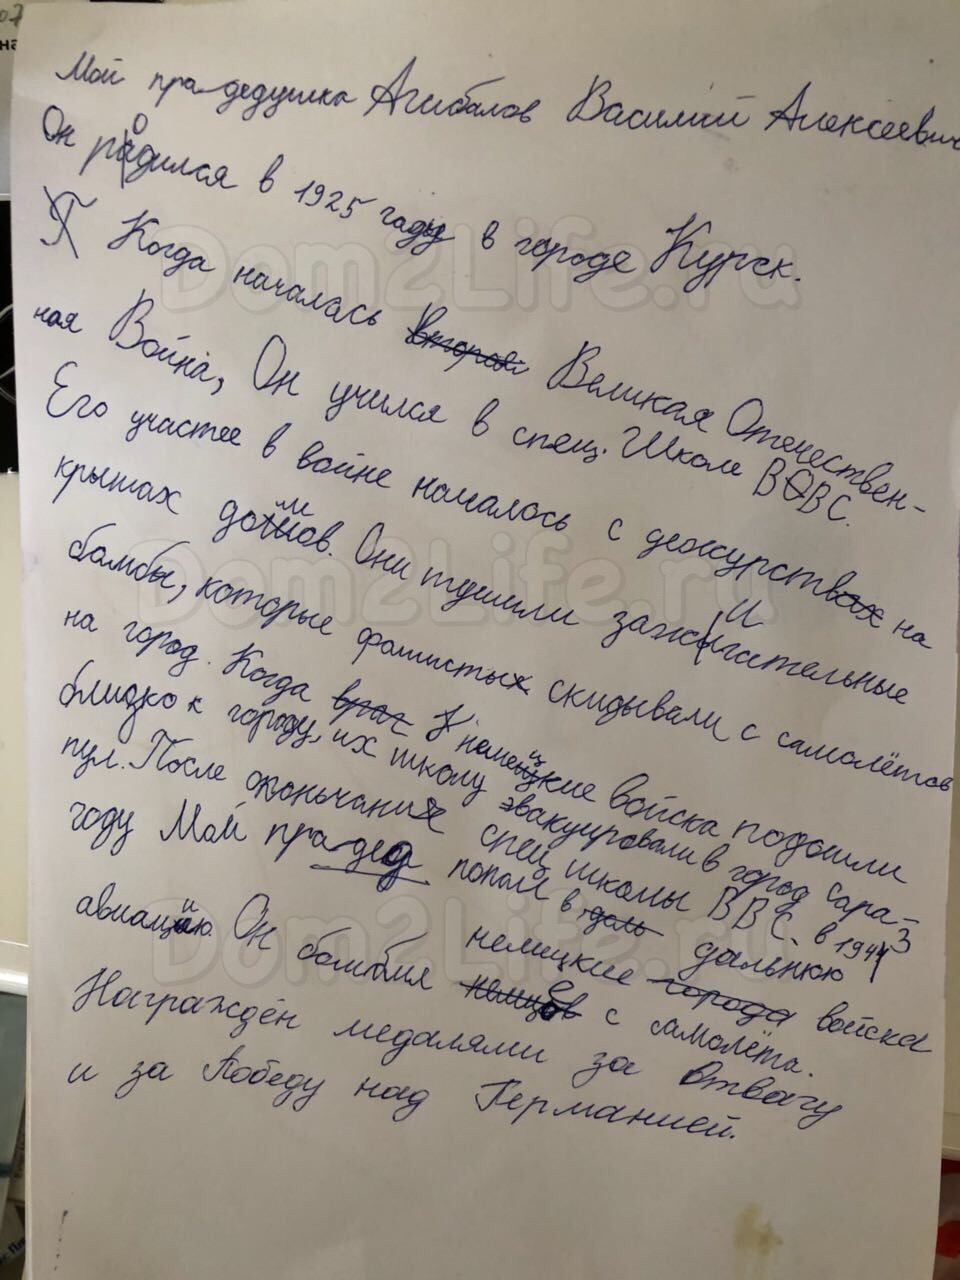 Мой прадедушка Агибалов Василий Алексеевич
Он родился в 1925 году в городе Курск.
Когда началась Великая Отечествен-
ная Война, Он учился в спец. Школе ВВС.
Его участее в войне началось с дежурства на
крышах домов. Они тушили зажигательные
бамбы, которые фашисты скидывали с самолётов
на город. Когда немецкие войска подошли
близко к городу, их школу эвакуировали в город Сара-
пул. После оконьчания спец школы ВВС в 1943
году Мой прадед попал в дальнюю
авиацию Он бомбил немицкие войска
с самолёта.
Награждён медалями за Отвагу
и за Победу над Германией.
Dom2Life.ru
Dom2Life.ru
Dom2Life.ru